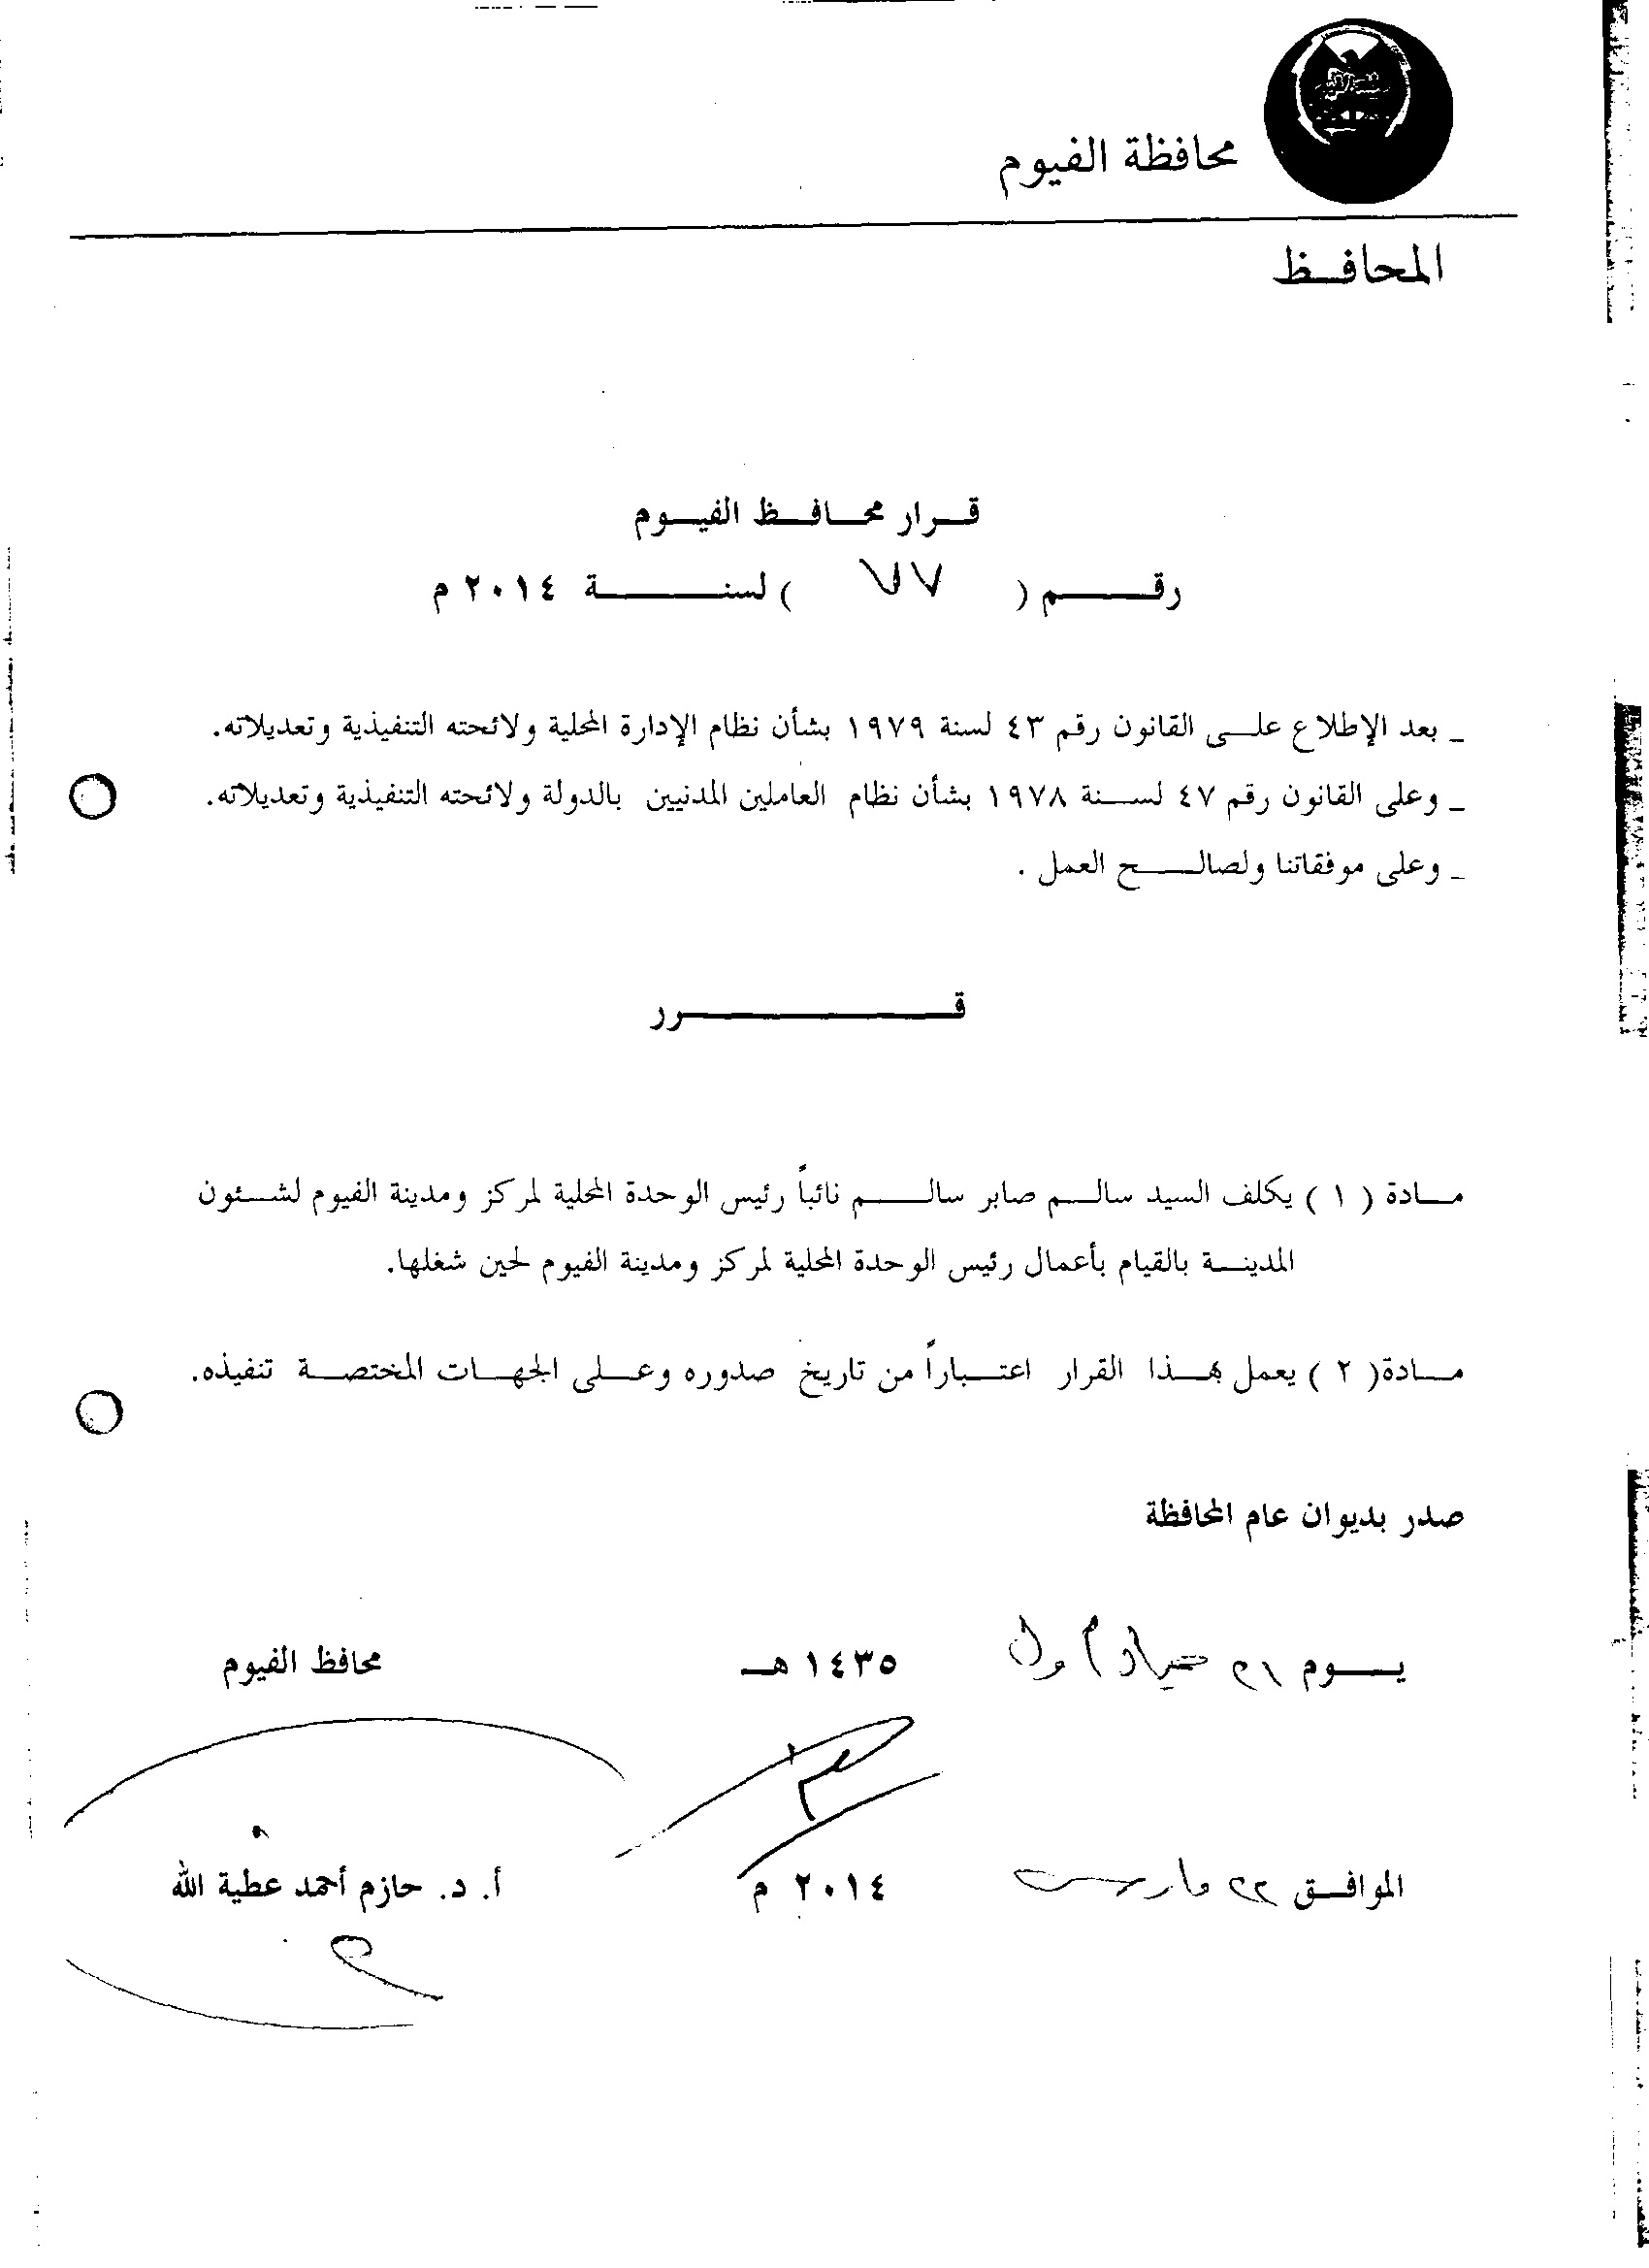 محافظة الفيوم
المحافظ
قرار محافظ الفيوم
رقم ( ٧٧ ) لسنة ٢٠١٤ م
_ بعد الإطلاع على القانون رقم ٤٣ لسنة ١٩٧٩ بشأن نظام الإدارة المحلية ولائحته التنفيذية وتعديلاته.
_ وعلى القانون رقم ٤٧ لسنة ١٩٧٨ بشأن نظام العاملين المدنيين بالدولة ولائحته التنفيذية وتعديلاته.
_ وعلى موفقاتنا ولصالح العمل .
قرر
مادة ( ١ ) يكلف السيد سالم صابر سالم نائباً رئيس الوحدة المحلية لمركز ومدينة الفيوم لشئون
المدينة بالقيام بأعمال رئيس الوحدة المحلية لمركز ومدينة الفيوم لحين شغلها.
مادة( ٢ ) يعمل بهذا القرار اعتباراً من تاريخ صدوره وعلى الجهات المختصة تنفيذه.
صدر بديوان عام المحافظة
يوم ٢١ جماد أول ١٤٣٥ هـ
محافظ الفيوم
الموافق ٢٢ مارس ٢٠١٤ م
أ. د. حازم أحمد عطية الله